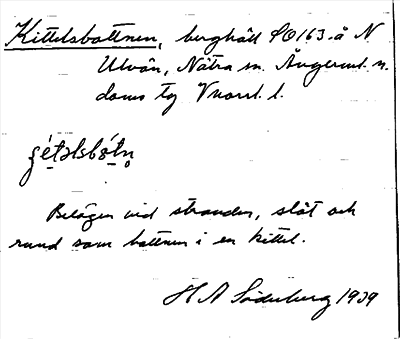 Kittelsbottnen, berghäll SO 163 å N
Ulvön, Nätra sn. Ångerml. n.
doms tg Vnorrl. l.
Belägen vid stranden, slät och
rund som bottnen i en kittel.
H A Söderberg 1939